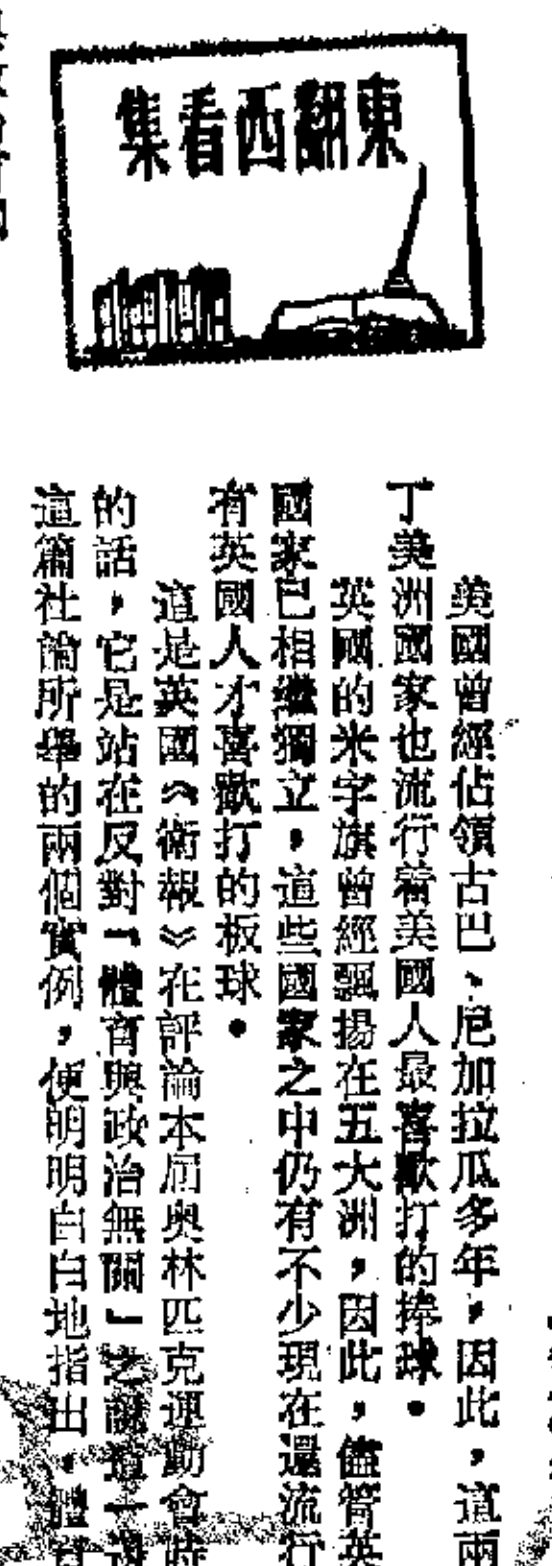 東翻西看集
美國曾經佔領古巴、尼加拉瓜多年，因此，這兩
丁美洲國家也流行着美國人最喜歡打的捧球。
英國的米字旗曾經飄揚在五大洲，因此，儘管英
國家已相繼獨立，這些國家之中仍有不少現在還流行
有英國人才喜歡打的板球。
這是英國《衛報》在評論本屆奥林匹克運動會時
的話，它是站在反對「體育與政治無關」之說這一邊
這篇社論所舉的兩個實例，便明明白白地指出，體育